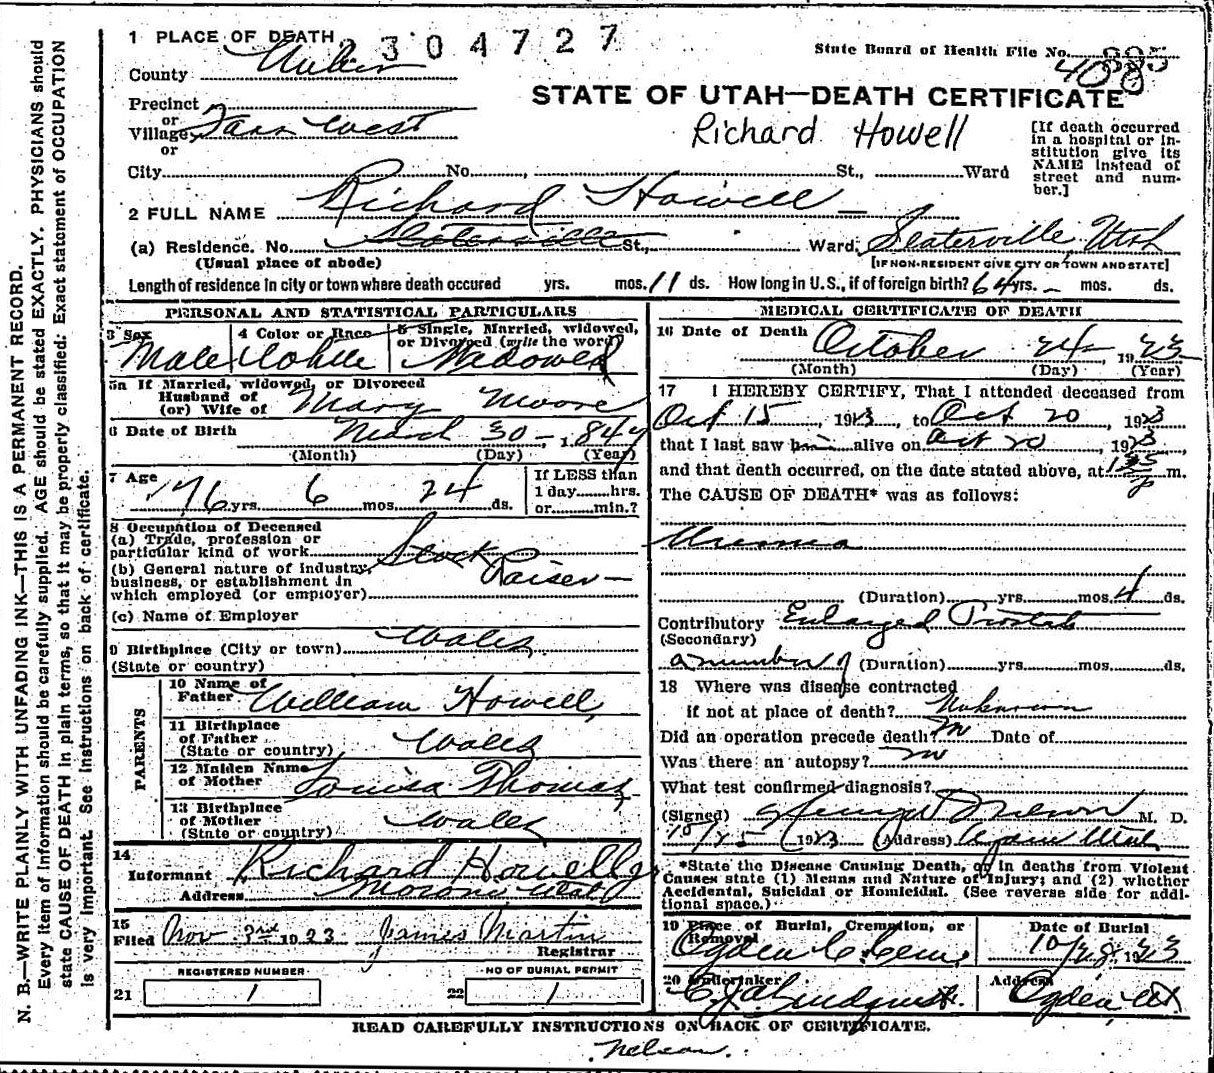 1 PLACE OF DEATH 2304727
State Board of Health File No.
4085
County Weber
STATE OF UTAH—DEATH CERTIFICATE
Precinct
or
Village Farr West
or
Richard Howell
[If death occurred
in a hospital or in-
stitution give its
NAME instead of
street and num-
ber.]
City No. St., Ward
2 FULL NAME Richard Howell
(a) Residence. No. Slaterville St., Ward. Slaterville, Utah
(Usual place of abode) [IF NON-RESIDENT GIVE CITY OR TOWN AND STATE]
Length of residence in city or town where death occured yrs. mos. 11 ds. How long in U.S., if of foreign birth? 64 yrs. – mos. ds.
PERSONAL AND STATISTICAL PARTICULARS
3 Sex
Male
4 Color or Race
White
5 Single, Married, widowed,
or Divorced (write the word)
Widowed
5a If Married, widowed, or Divorced
Husband of
(or) Wife of Mary Moore
6 Date of Birth March 30 – 184
(Month) (Day) (Year)
7 Age 76 yrs. 6 mos. 24 ds.
If LESS than
1 day hrs.
or min.?
8 Occupation of Deceased
(a) Trade, profession or
particular kind of work Stock
(b) General nature of industry, Raiser –
business, or establishment in
which employed (or employer)
(c) Name of Employer
9 Birthplace (City or town) Wales
(State or country)
PARENTS
10 Name of
Father William Howell
11 Birthplace
of Father Wales
(State or country)
12 Maiden Name
of Mother Louisa Thomas
13 Birthplace
of Mother Wales
(State or country)
14
Informant Richard Howell Jr
Address Moroni Utah
15
Filed Nov. 3rd 1923 James Martin
Registrar
REGISTERED NUMBER
21 1
NO OF BURIAL PERMIT
22 1
MEDICAL CERTIFICATE OF DEATH
16 Date of Death October 24– 1923
(Month) (Day) (Year)
17 I HEREBY CERTIFY, That I attended deceased from
Oct 15, 1923, to Oct 20, 1923
that I last saw him alive on Oct 20, 1923,
and that death occurred, on the date stated above, at 135 p m.
The CAUSE OF DEATH* was as follows:
Uremia
(Duration) yrs. mos. 4 ds.
Contributory Enlarged Prostate
(Secondary)
a number of (Duration) yrs. mos. ds.
18 Where was disease contracted
if not at place of death? Unknown
Did an operation precede death? no Date of
Was there an autopsy? no
What test confirmed diagnosis?
(Signed) M. D.
10/25 1923 (Address) Ogden Utah
*State the Disease Causing Death, or in deaths from Violent
Causes state (1) Means and Nature of Injury; and (2) whether
Accidental, Suicidal or Homicidal. (See reverse side for addi-
tional space.)
19 Place of Burial, Cremation, or
Removal
Ogden C. Cem.
Date of Burial
10/28, 1923
20 Undertaker
Lindquist
Address
Ogden, Ut
READ CAREFULLY INSTRUCTIONS ON BACK OF CERTIFICATE.
Nelson.
N. B.—WRITE PLAINLY WITH UNFADING INK—THIS IS A PERMANENT RECORD.
Every item of information should be carefully supplied. AGE should be stated EXACTLY. PHYSICIANS should
state CAUSE OF DEATH in plain terms, so that it may be properly classified. Exact statement of OCCUPATION
is very important. See Instructions on back of certificate.